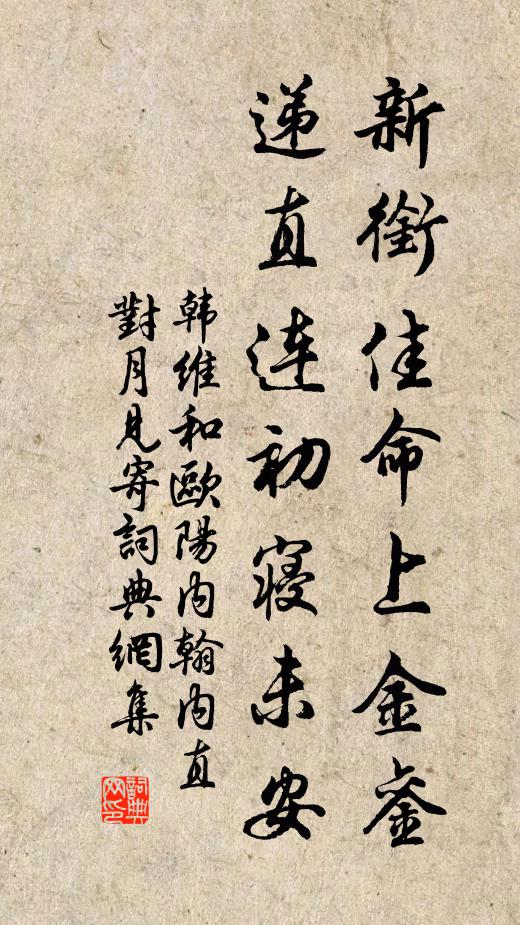 新銜佳命上金銮
递直连初寝未安
韩维和歐陽内翰内直
對月見寄詞典網集
詞典网印